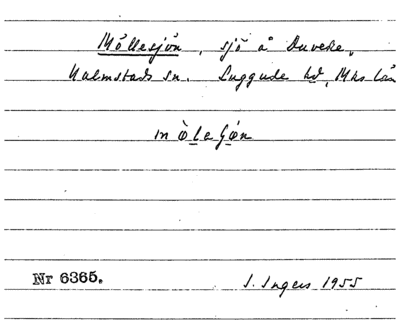 Möllesjön, sjö å Duveke,
Halmstads sn. Luggude hd, Mhs län
mòleʃön
Nr 6365.
I. Ingers 1955